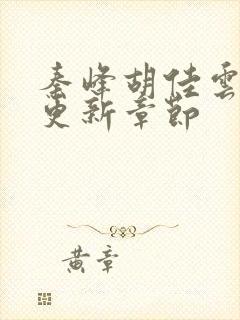 秦峰胡佳雲
更新章節
黄章